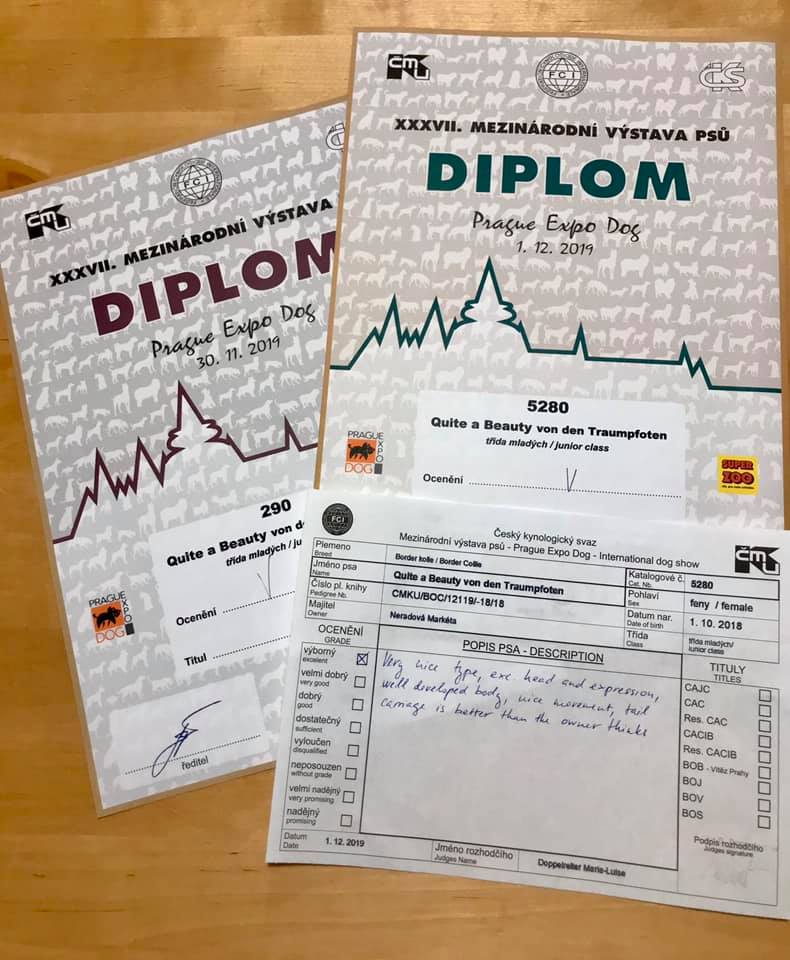 ČMKU
FCI
XXXVII. MEZINÁRODNÍ VÝSTAVA
DIPLOM
Prague Expo Dog
30. 11. 2019
290
Quite a Beauty von
třída mladých / ju
Ocenění
Titul
PRAGUE
EXPO
DOG
ředitel
ČMKU
FCI
ČKS
XXXVII. MEZINÁRODNÍ VÝSTAVA PSŮ
DIPLOM
Prague Expo Dog
1. 12. 2019
5280
Quite a Beauty von den Traumpfoten
třída mladých / junior class
Ocenění V
PRAGUE
EXPO
DOG
SUPER
ZOO
FCI
Český kynologický svaz
Mezinárodní výstava psů - Prague Expo Dog - International dog show
ČMKU
Plemeno
Breed
Border kolie / Border Collie
Jméno psa
Name
Quite a Beauty von den Traumpfoten
Katalogové č.
Cat. Nb.
5280
Číslo pl. knihy
Pedigree Nb.
CMKU/BOC/12119/-18/18
Pohlaví
Sex
feny / female
Majitel
Owner
Neradová Markéta
Datum nar.
Date of birth
1. 10. 2018
Třída
Class
třída mladých/
junior class
OCENĚNÍ
GRADE
výborný
excelent
velmi dobrý
very good
dobrý
good
dostatečný
sufficient
vyloučen
disqualified
neposouzen
without grade
velmi nadějný
very promising
nadějný
promising
POPIS PSA - DESCRIPTION
Very nice type, exc head and expression,
well developed body, nice movement, tail
carriage is better than the owner thinks
TITULY
TITLES
CAJC
CAC
Res. CAC
CACIB
Res. CACIB
BOB - Vítěz Prahy
BOJ
BOV
BOS
Datum
Date
1. 12. 2019
Jméno rozhodčího
Judges Name
Doppelreiter Marie-Luise
Podpis rozhodčího
Judges signature